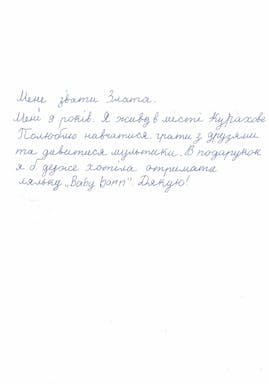 Мене звати Злата.
Мені 9 років. Я живу в місті Курахове
Полюбляю навчатися, грати з друзями
та дивитися мультики. В подарунок
я б дуже хотіла отримати
ляльку „Baby born". Дякую!